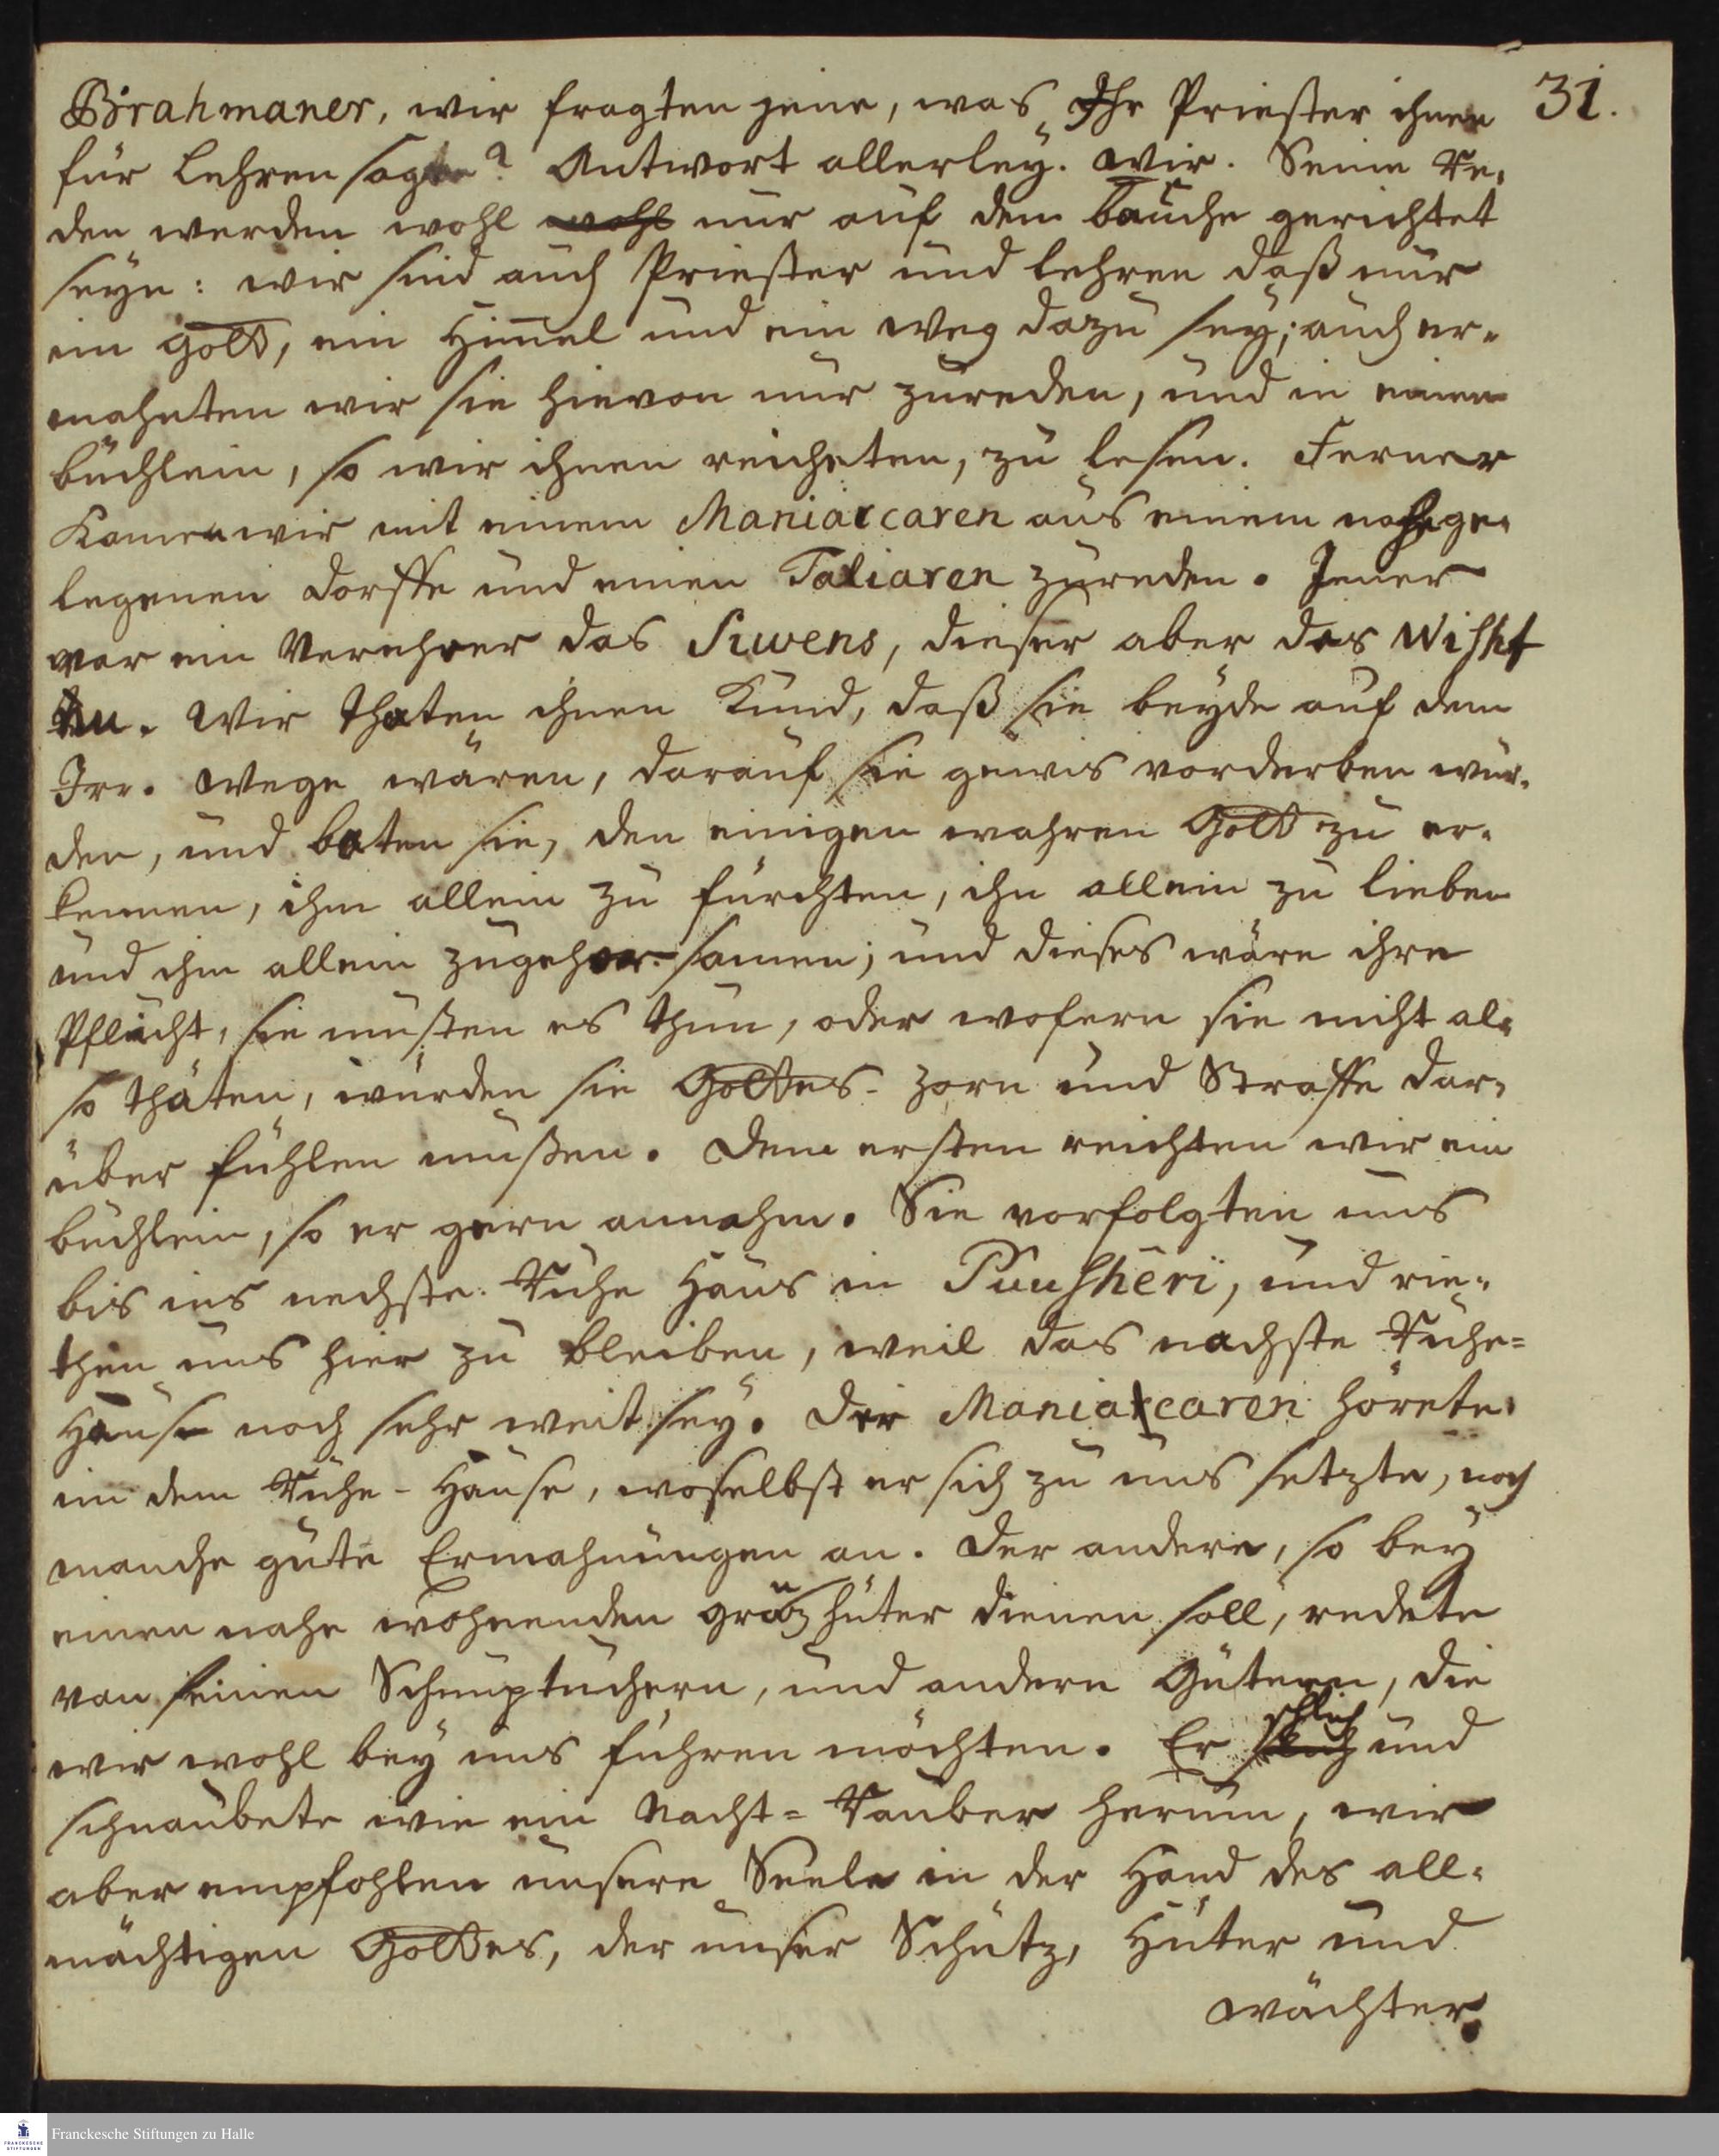 31.
Brahmaner, wir fragten jene, was Ihr Priester ihnen
für Lehren sagte? Antwort allerley. Wir. Seine Re,
den werden wohl wohl nur auf dem bauche gerichtet
seyn: wir sind auch Priester und lehren daß nur
ein Gott, ein Him̅el und ein Weg dazu sey; auch er-
mahnten wir sie hievon nur zureden, und in einen
büchlein, so wir ihnen reicheten, zu lesen. Ferner
Kamen wir mit einem Maniaccaren aus einem nahge-
legenen Dorffe und einen Taliaren zureden. Jener
war ein Verehrer das Siwens, dieser aber des Wischt
nu. Wir thaten ihnen Kund, daß sie beyde auf dem
Irr-Wege wären, darauf sie gewis vorderben wür-
den, und baten sie, den einigen wahren Gott zu er-
kennen, ihm allein zu fürchten, ihn allein zu lieben
und ihm allein zugehorsamen; und dieses wäre ihre
Pflicht, sie müsten es thun, oder wofern sie nicht al-
so thäten, würden sie Gottes-Zorn und Straffe dar-
über fühlen müßen. Dem ersten reichten wir ein
büchlein, so er gern annahm. Sie vorfolgten uns
bis ins nechste Ruhe Haus in Puusheri, und rie-
then uns hier zu bleiben, weil das nachste Ruhe-
Hause noch sehr weit sey. Der Maniaccaren hörete
in dem Ruhe-Hause, woselbst er sich zu uns setzte, noch
manche gute Ermahnungen an. Der andere, so bey
einen nahe wohnenden gränzhüter dienen soll, redete
von seinen Schnuptuchern, und andern Gütern, die
wir wohl bey uns führen möchten. Er schlich und
schnaubete wie ein Nacht-Rauber herum, wir
aber empfohlen unsere Seele in der Hand des all-
mächtigen Gottes, der unser Schutz, Hüter und
Wächter
Franckesche Stiftungen zu Halle